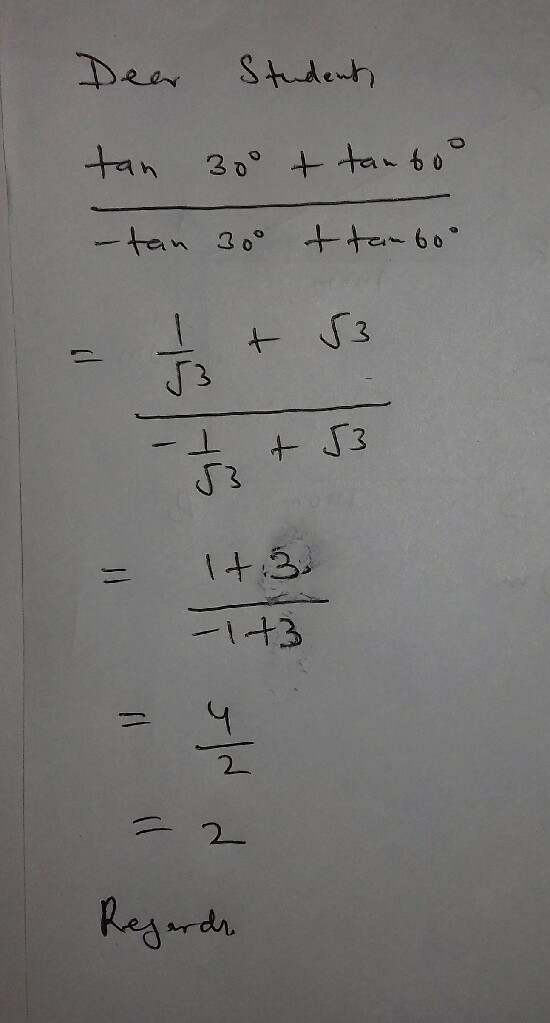 Dear Student,
tan 30° + tan 60°
-tan 30° + tan 60°
= 1/√3 + √3
-1/√3 + √3
= 1+3
-1+3
= 4
2
= 2
Regards